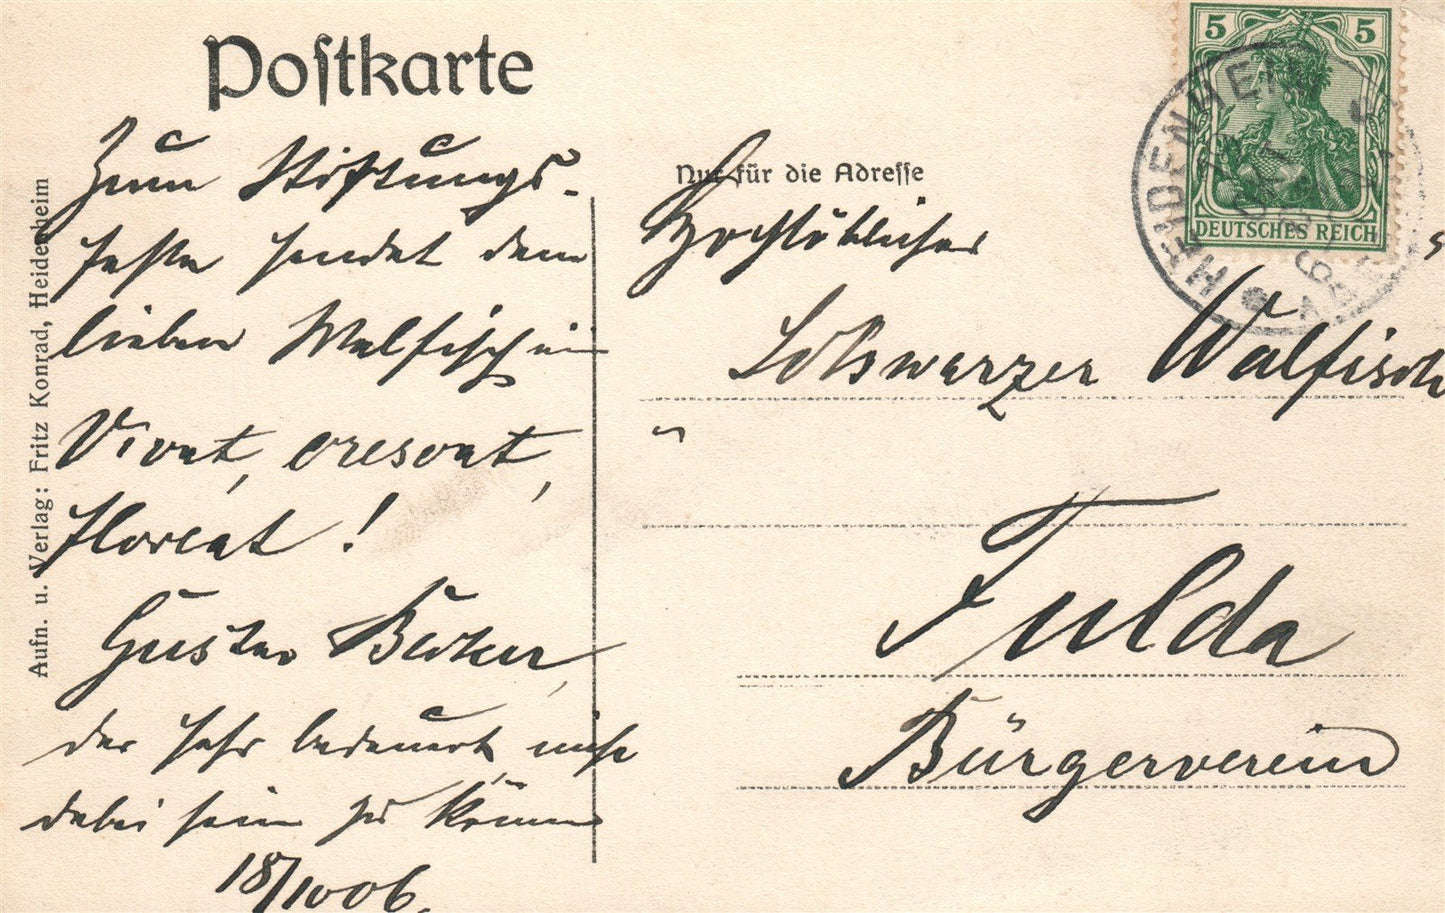 Postkarte
Zum Stiftungs-
feste sendet dem
lieben Walfisch ein
Vivat, crescat,
floreat!
Gustav
der sehr bedauert nicht
dabei sein zu können
18/10 06.
Nur für die Adresse
Wohllöblicher
Walfisch
Fulda
Bürgerverein
5 5
DEUTSCHES REICH
HEIDENHEIM
Aufn. u. Verlag: Fritz Konrad, Heidenheim